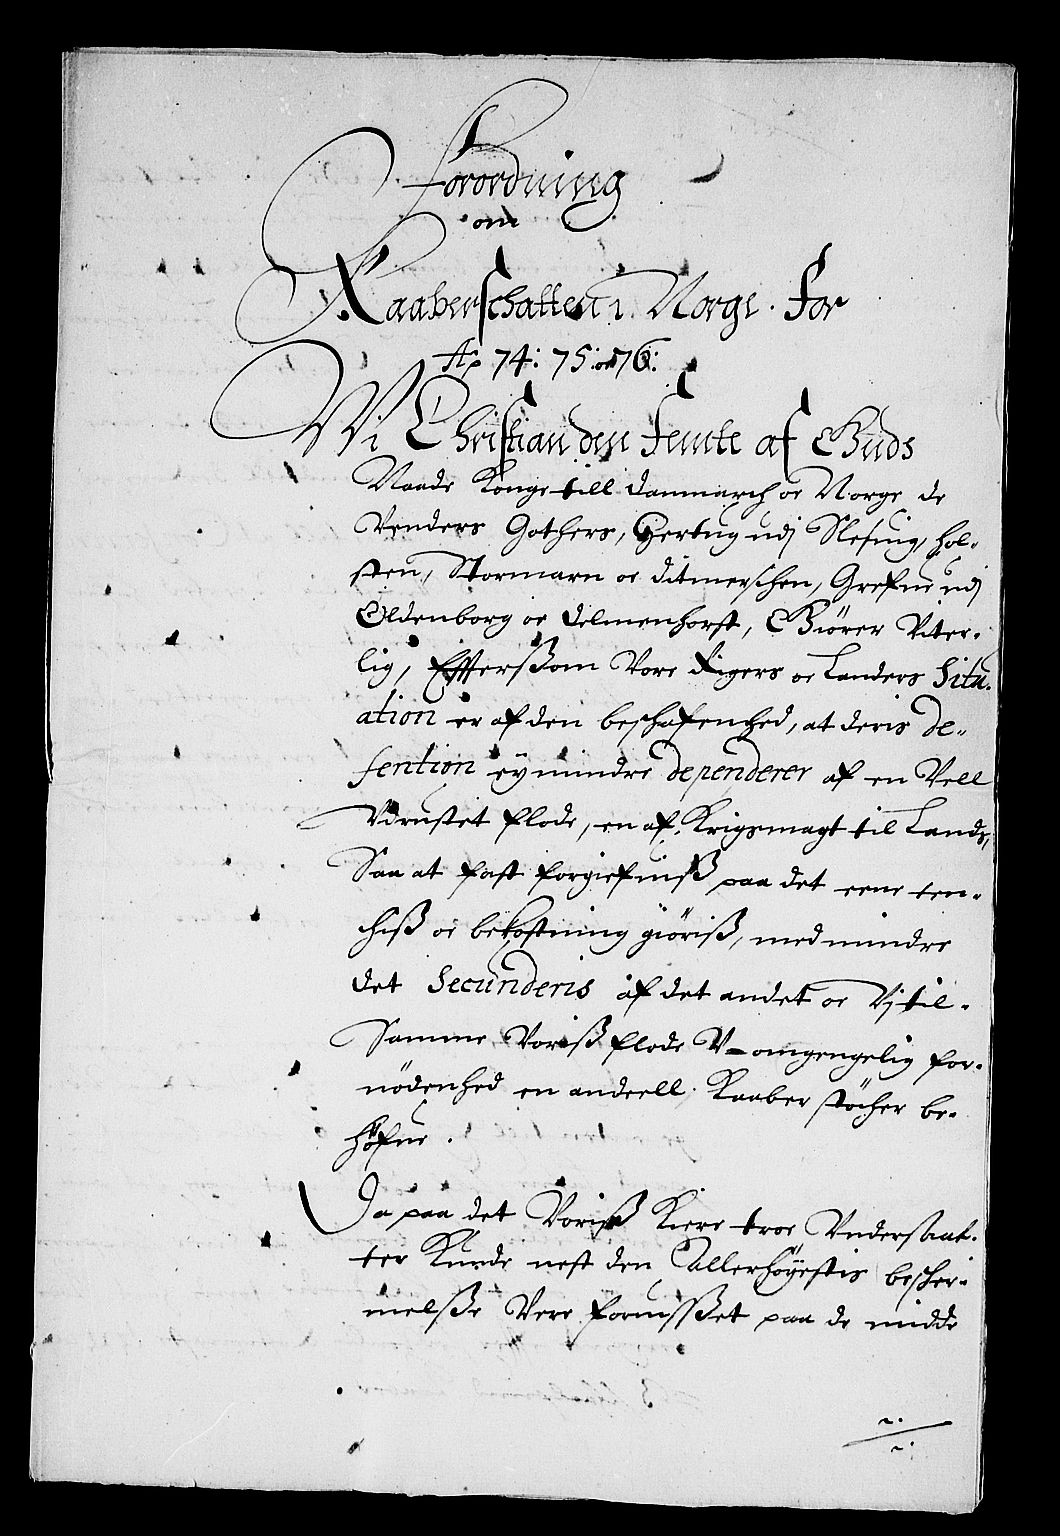 Forordning
om
Kaaberschatten i Norge. For
Ao 74: 75: oc 76:
Wi Christian den Femte af Guds
Naade Konge till Danmarch oc Norge de
Venders Gothers, Hertug udj Slesuig, Hol-
sten, Stormarn oc Ditmerschen, Grefue udj
Oldenborg oc Delmenhorst, Giörer Viter-
lig, Effterssom Vore Rigers oc Landers Situ-
ation er af den beschafenhed, at deris de-
fention ey mindre dependerer af en Vell
Vdrustet flode, en af Krigsmagt til Lands,
Saa at fast forgiefuiss paa det eene ten-
chiss oc bekostning giöriss, med mindre
det Secunderis af det andet oc Vj til
Samme Voriss flode V-omgengelig for-
nödenhed en andeell Kaaber stöcher be-
höfue.
Da paa det Voriss Kiere troe Vndersaat-
ter Kunde nest den Allerhöyestis bescher-
melsse Vere foruisset paa de midde